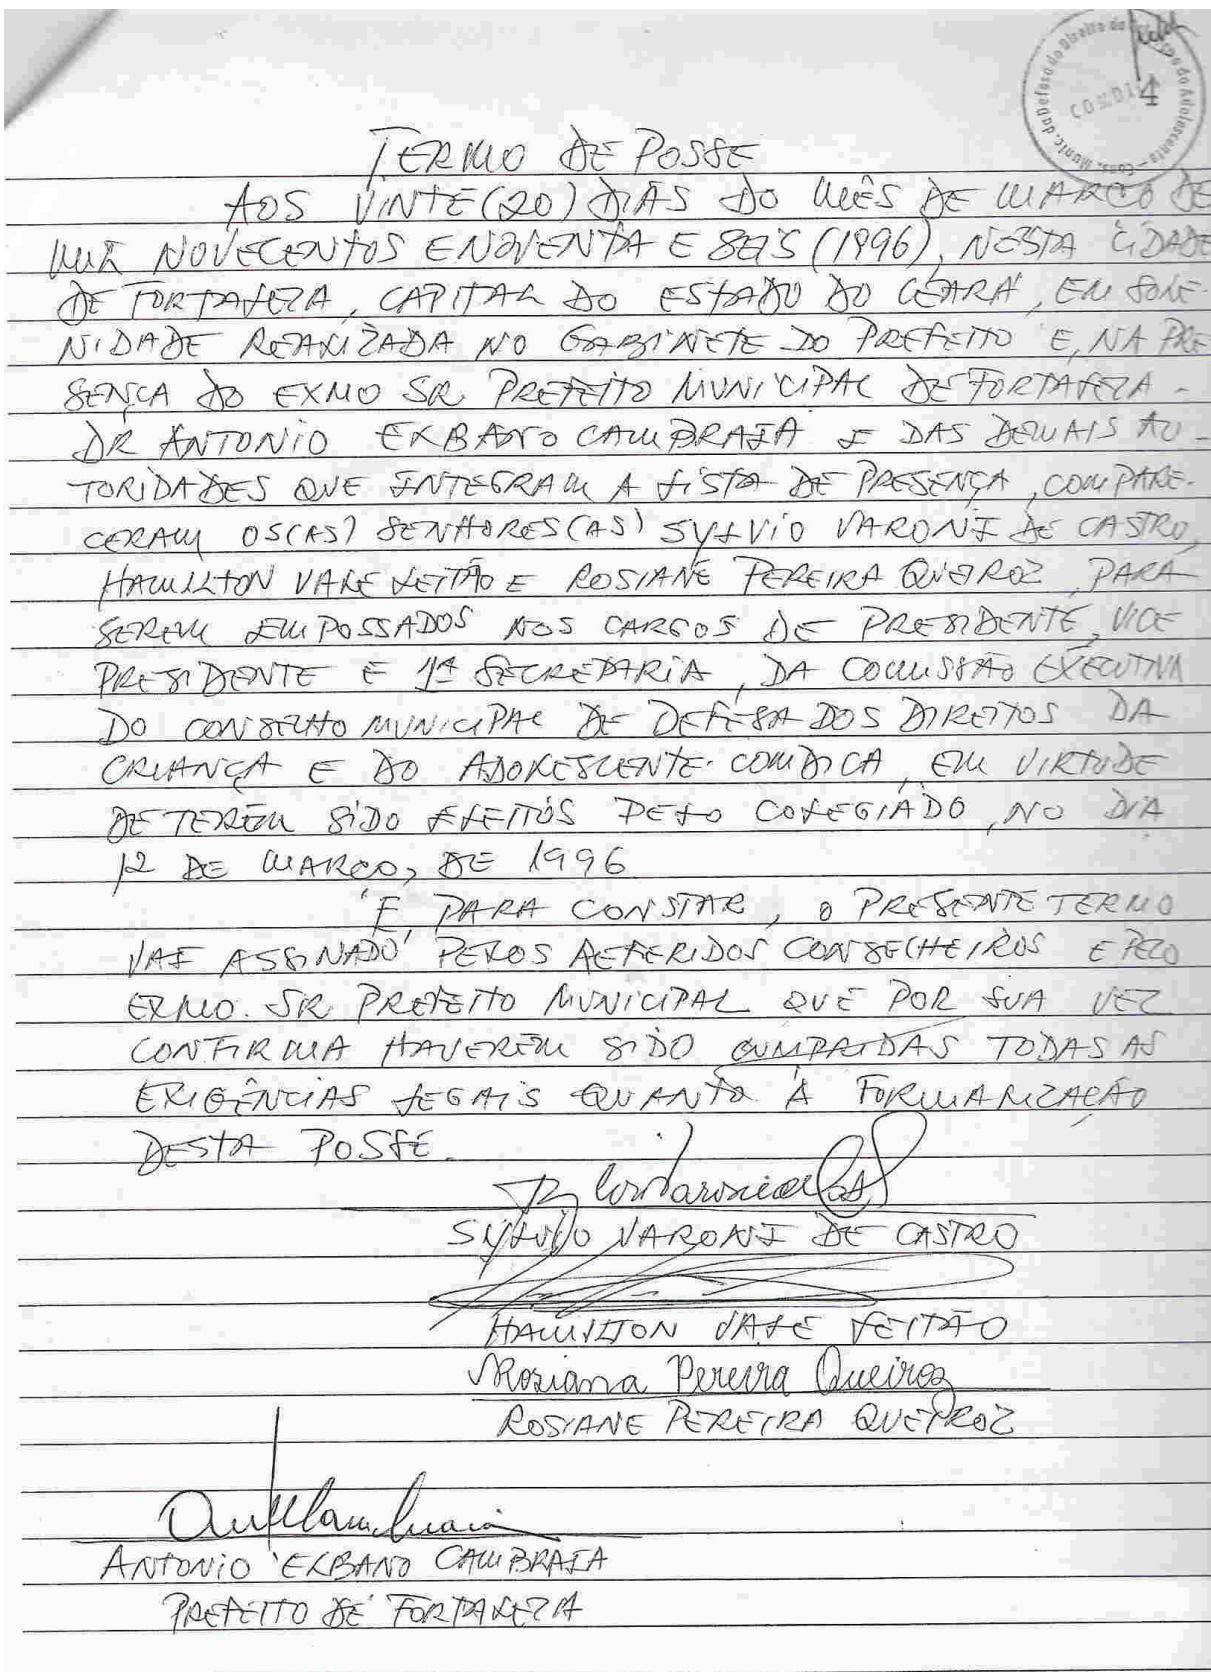 Cons. Munic. da Defesa do Direito da Criança e do Adolescente
COMDICA
4
TERMO DE POSSE
AOS VINTE (20) DIAS DO MÊS DE MARÇO DE
MIL NOVECENTOS E NOVENTA E SEIS (1996), NESTA CIDADE
DE FORTALEZA, CAPITAL DO ESTADO DO CEARÁ, EM SOLE-
NIDADE REALIZADA NO GABINETE DO PREFEITO E, NA PRE
SENÇA DO EXMO SR. PREFEITO MUNICIPAL DE FORTALEZA -
DR ANTONIO ELBANO CAMBRAIA E DAS DEMAIS AU-
TORIDADES QUE INTEGRAM A LISTA DE PRESENÇA, COMPARE-
CERAM OS(AS) SENHORES(AS) SYLVIO VARONI DE CASTRO,
HAMILTON VALE LEITÃO E ROSIANE PEREIRA QUEIROZ, PARA
SEREM EMPOSSADOS NOS CARGOS DE PRESIDENTE, VICE
PRESIDENTE E 1ª SECRETARIA, DA COMISSÃO EXECUTIVA
DO CONSELHO MUNICIPAL DE DEFESA DOS DIREITOS DA
CRIANÇA E DO ADOLESCENTE-COMDICA, EM VIRTUDE
DE TEREM SIDO ELEITOS PELO COLEGIADO, NO DIA
12 DE MARÇO, DE 1996
E, PARA CONSTAR, O PRESENTE TERMO
VAI ASSINADO PELOS REFERIDOS CONSELHEIROS E PELO
EXMO. SR. PREFEITO MUNICIPAL QUE POR SUA VEZ
CONFIRMA HAVEREM SIDO CUMPRIDAS TODAS AS
EXIGÊNCIAS LEGAIS QUANTO À FORMALIZAÇÃO
DESTA POSSE.
SYLVIO VARONI DE CASTRO
HAMILTON VALE LEITÃO
Rosiana Pereira Queiroz
ROSIANE PEREIRA QUEIROZ
ANTONIO ELBANO CAMBRAIA
PREFEITO DE FORTALEZA